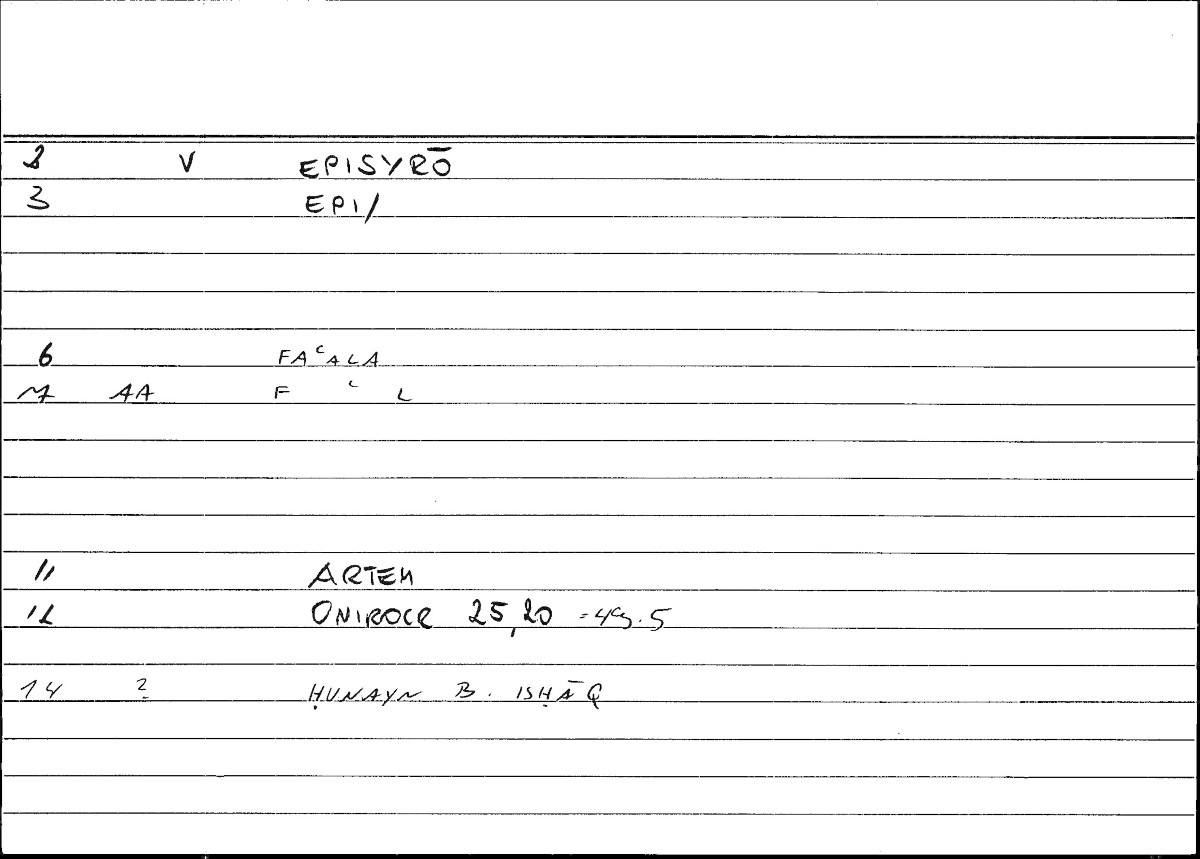 2 V EPISYRŌ
3 EPI/
6 FAʿALA
7 AA F ʿ L
11 ARTEM
12 ONIROCR 25,20 = 49.5
14 2 ḤUNAYN B. ISḤĀQ